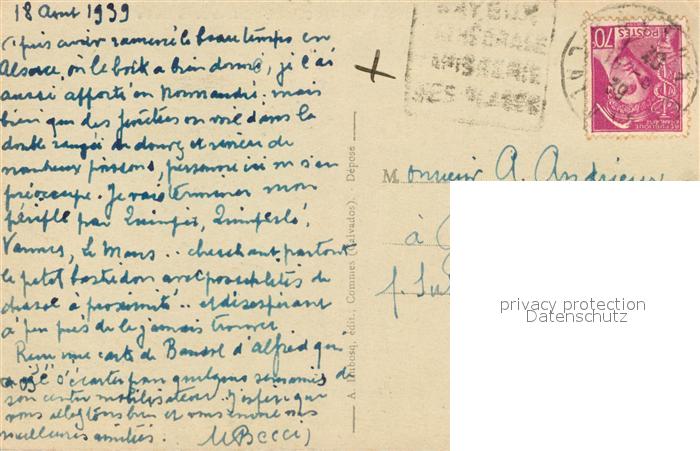 18 Aout 1939
Puis avoir ramené le beau temps en
Alsace, où le bock a bien donné, je l'ai
aussi apporté en Normandie. mais
bien que des on voit dans la
double rangée de et
nombreux poissons, personne ici ne s'en
préoccupe. Je vais terminer mon
périple par Quimper, Quimperlé,
Vannes, Le Mans .. cherchant partout
le petit bastidon avec possibilités de
chasse à proximité .. et désespérant
à peu près de le jamais trouver
Reçu une carte de Bandol d'Alfred qui
a osé s'écarter pour quelques semaines de
son centre mobilisateur. J'espère que
vous allez tous bien et vous envoie mes
meilleures amitiés.
A. édit., Commes (Calvados). Déposé
BAYEUX
CATHEDRALE
TAPISSERIE
POSTES
70c
REPUBLIQUE
FRANCAISE
39
Monsieur A. Andrieux
à
privacy protection
Datenschutz